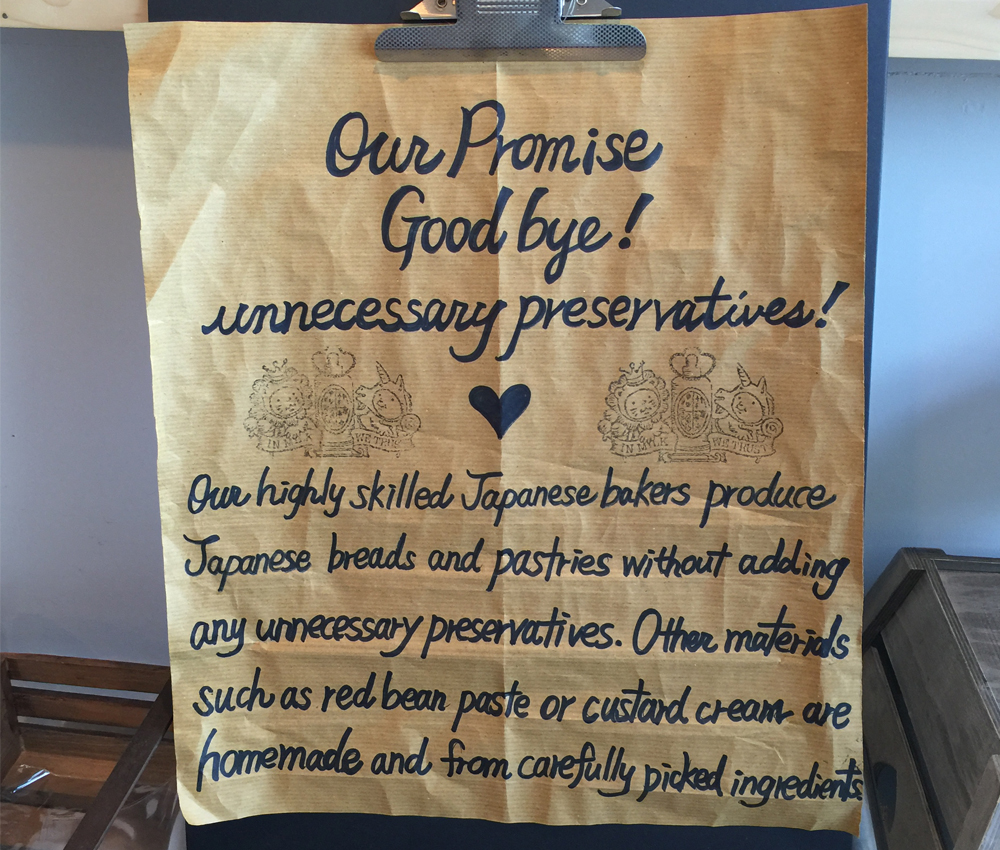 Our Promise
Good bye!
unnecessary preservatives!
IN MILK WE TRUST
IN MILK WE TRUST
Our highly skilled Japanese bakers produce
Japanese breads and pastries without adding
any unnecessary preservatives. Other materials
such as red bean paste or custard cream are
homemade and from carefully picked ingredients